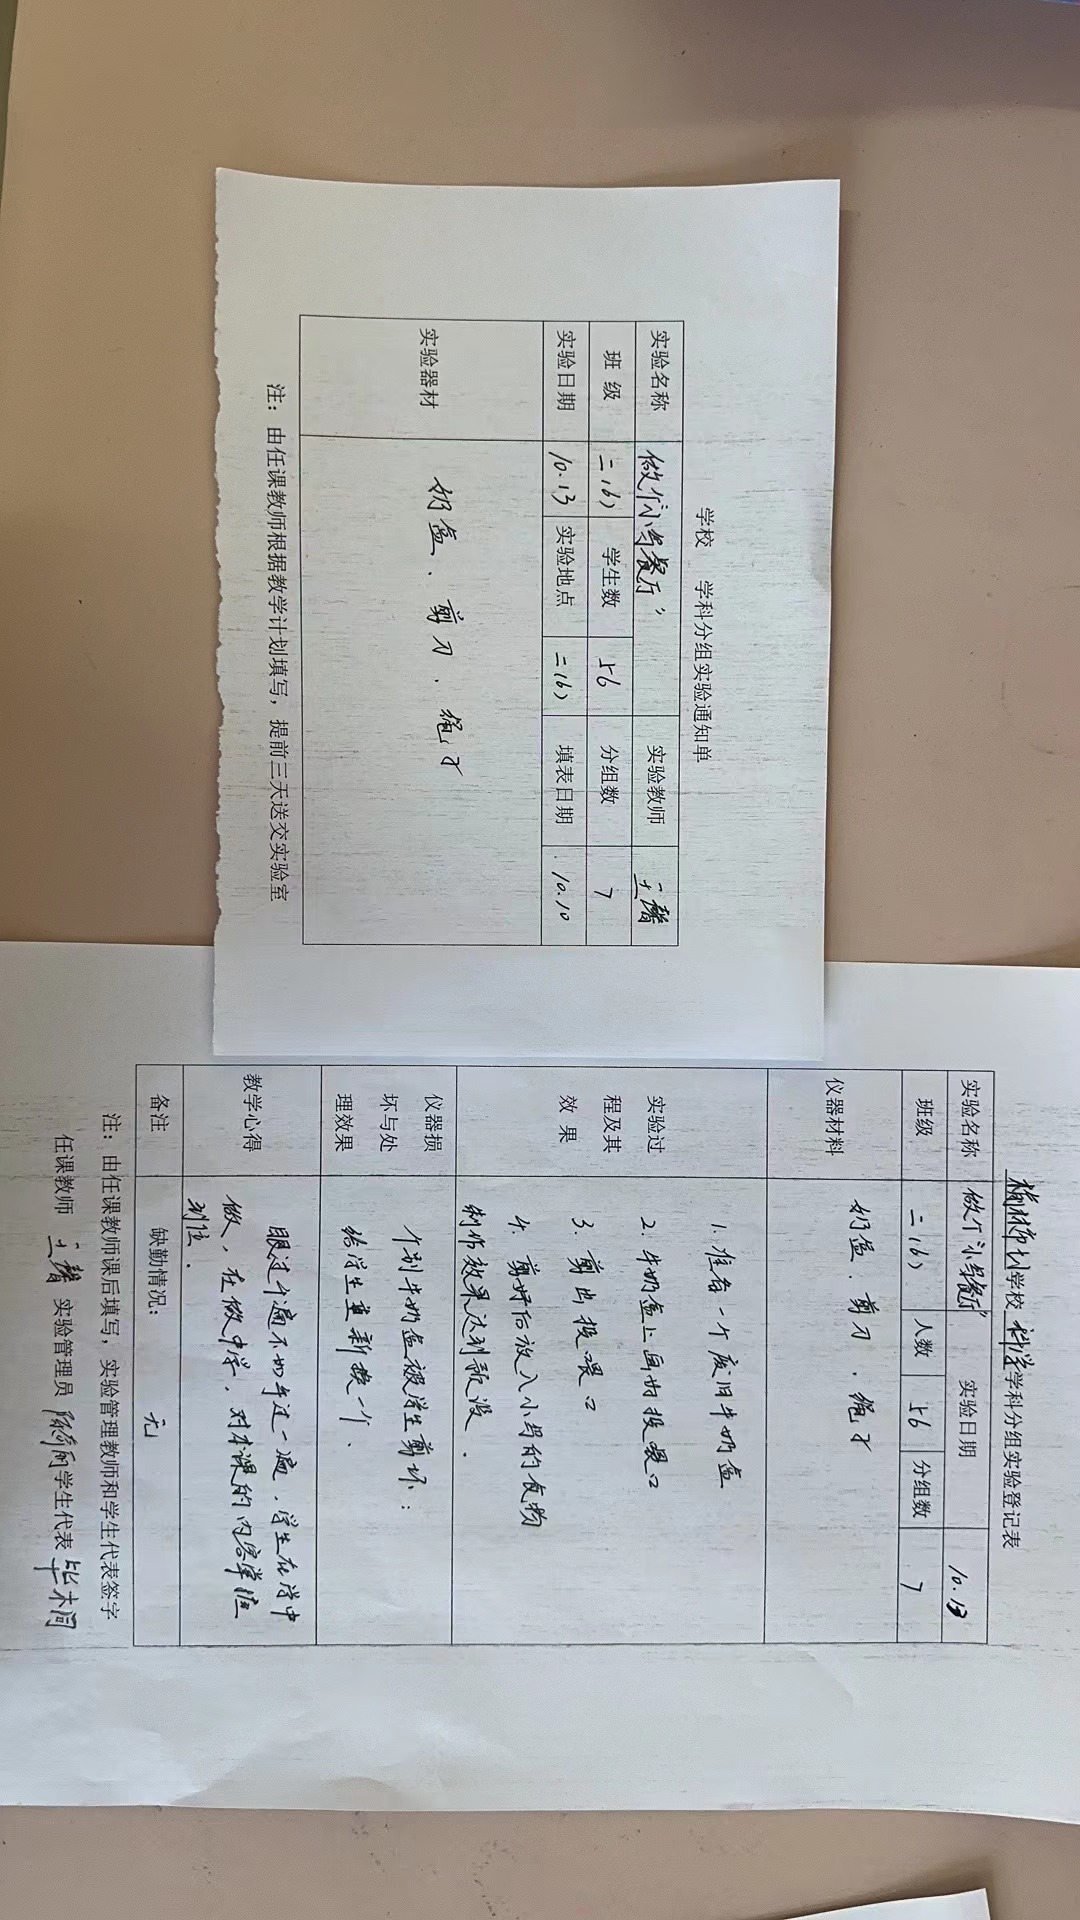 学校 学科分组实验通知单
实验名称 做个“小鸟餐厅” 实验教师
班级 二(6) 学生数 56 分组数 7
实验日期 10.13 实验地点 二(6) 填表日期 10.10
实验器材 奶盒、剪刀、绳子
注：由任课教师根据教学计划填写，提前三天送交实验室
学校 科学 学科分组实验登记表
实验名称 做个“小鸟餐厅” 实验日期 10.13
班级 二(6) 人数 56 分组数 7
仪器材料 奶盒、剪刀、绳子
实验过
程及其
效果
1. 准备一个废旧牛奶盒
2. 牛奶盒上画出投喂口
3. 剪出投喂口
4. 剪好后放入小鸟的食物
制作效果达到预设.
仪器损
坏与处
理效果
个别牛奶盒被学生剪坏:
给学生重新换一个.
教学心得
眼过千遍不如手过一遍.学生在学中
做,在做中学.对本课的内容掌握
到位.
备注 缺勤情况: 无
注：由任课教师课后填写，实验管理教师和学生代表签字
任课教师 实验管理员 学生代表